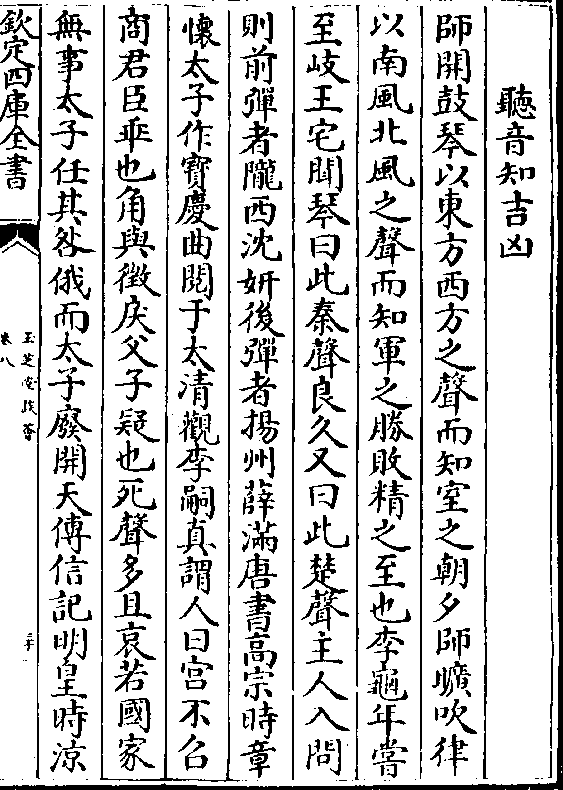 聽音知吉凶
師開鼓琴以東方西方之聲而知室之朝夕師曠吹律
以南風北風之聲而知軍之勝敗精之至也李龜年嘗
至岐王宅聞琴曰此秦聲良久又曰此楚聲主人入問
則前彈者隴西沈妍後彈者揚州薛滿唐書高宗時章
懷太子作寶慶曲閱于太清觀李嗣真謂人曰宫不召
商君臣乖也角與徵戾父子疑也死聲多且哀若國家
無事太子任其咎俄而太子廢開天傳信記明皇時涼
欽定四庫全書
玉芝堂談薈
卷八
二十